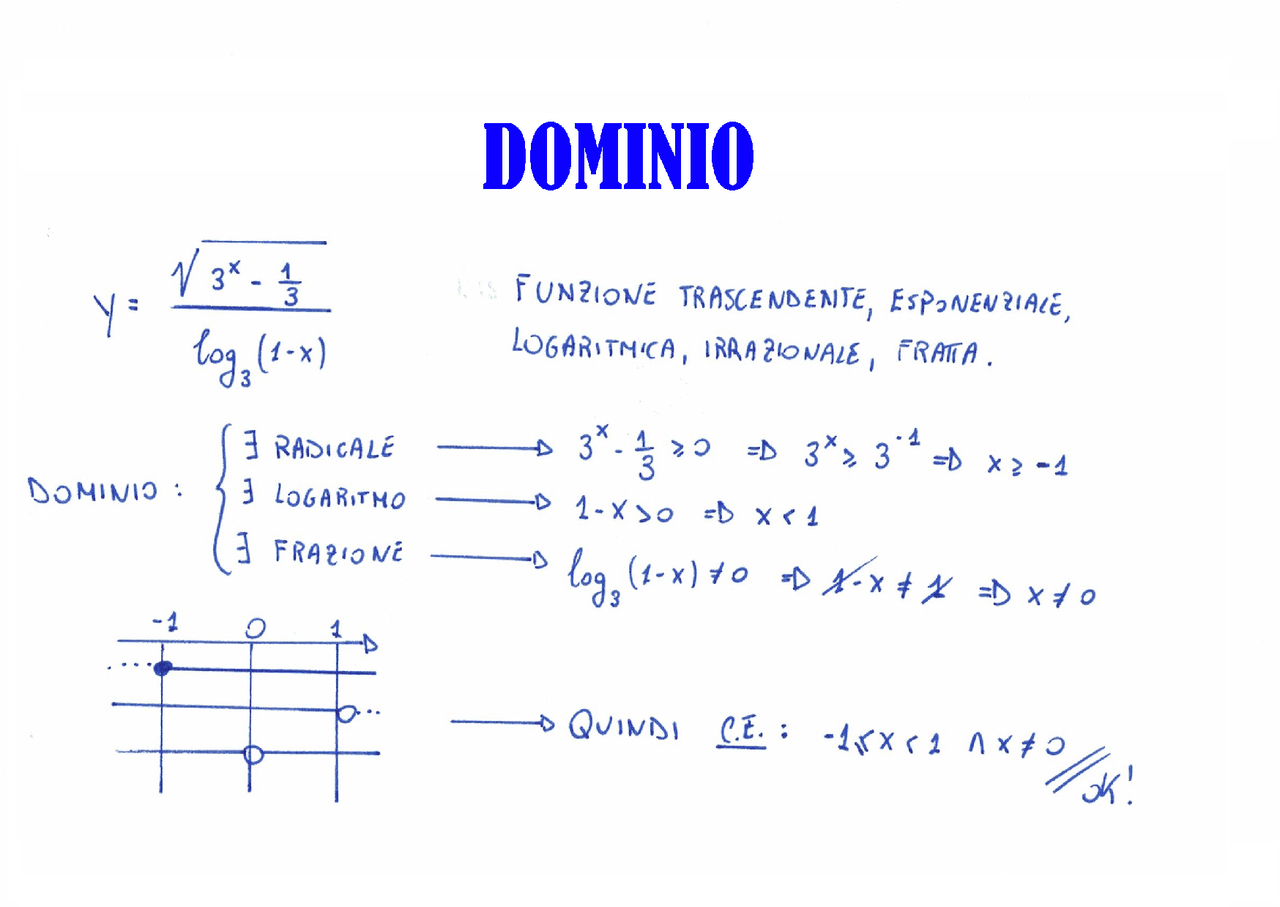 DOMINIO
y = √(3^x - 1/3) / log₃(1-x)
FUNZIONE TRASCENDENTE, ESPONENZIALE,
LOGARITMICA, IRRAZIONALE, FRATTA.
DOMINIO :
∃ RADICALE → 3^x - 1/3 ≥ 0 ⇒ 3^x ≥ 3^-1 ⇒ x ≥ -1
∃ LOGARITMO → 1-x > 0 ⇒ x < 1
∃ FRAZIONE → log₃(1-x) ≠ 0 ⇒ 1-x ≠ 1 ⇒ x ≠ 0
-1 0 1
→ QUINDI C.E. : -1 ≤ x < 1 ∧ x ≠ 0 // OK!